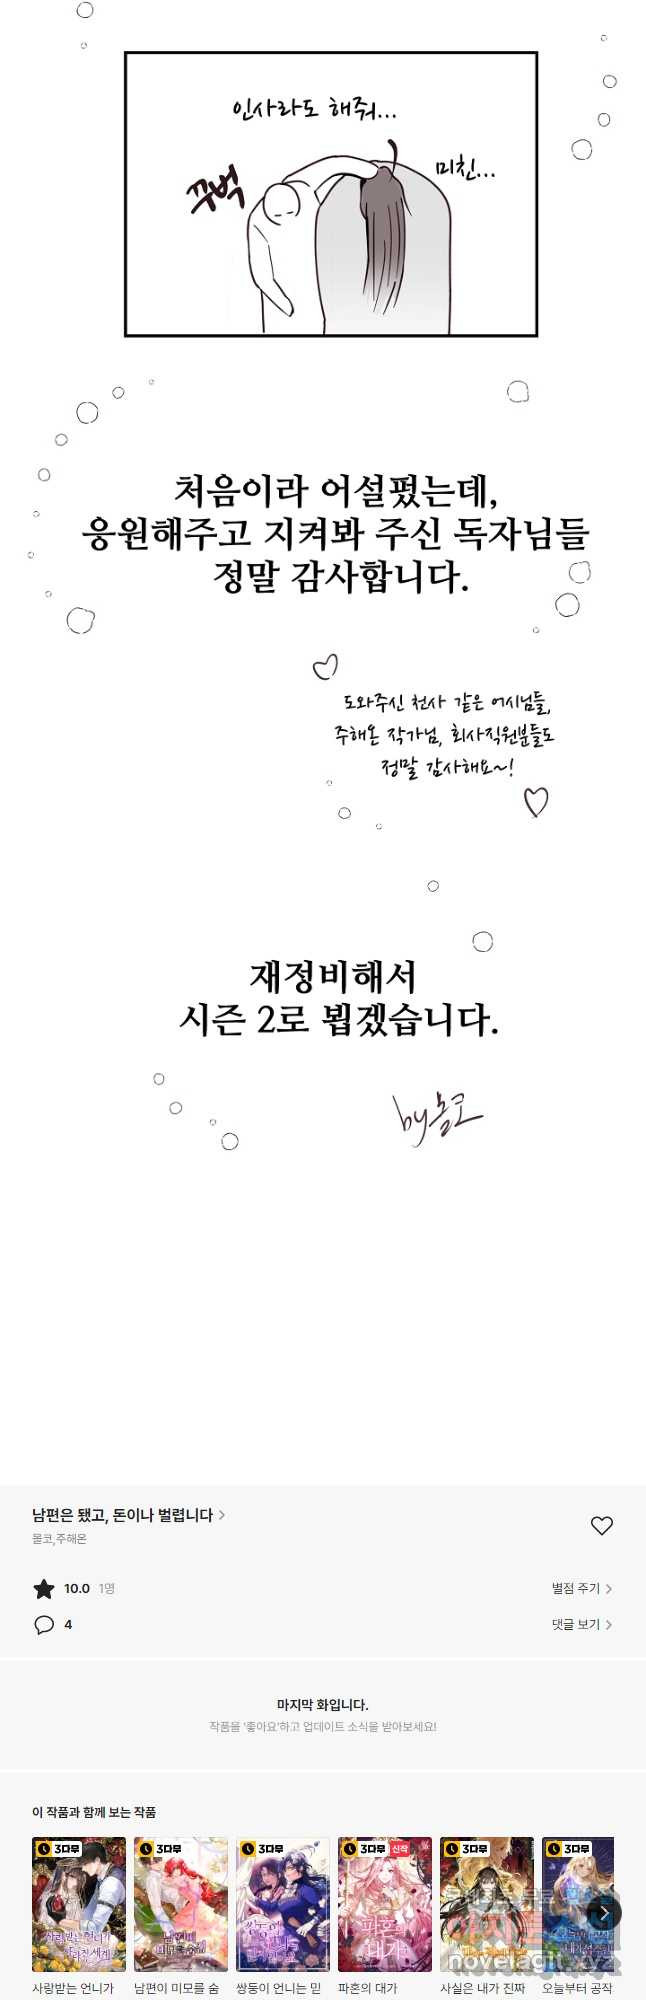 인사라도 해줘...
꾸벅
미친...
처음이라 어설펐는데,
응원해주고 지켜봐 주신 독자님들
정말 감사합니다.
도와주신 천사 같은 어시님들,
주해온 작가님, 회사직원분들도
정말 감사해요~!
재정비해서
시즌 2로 뵙겠습니다.
by 몰코
남편은 됐고, 돈이나 벌렵니다
몰코,주해온
10.0 1명
별점 주기
4
댓글 보기
마지막 화입니다.
작품을 '좋아요'하고 업데이트 소식을 받아보세요!
이 작품과 함께 보는 작품
3다무
3다무
3다무
3다무 신작
3다무
3다무
파혼의 대가
novelagit.xyz
사랑받는 언니가
남편이 미모를 숨
쌍둥이 언니는 믿
파혼의 대가
사실은 내가 진짜
오늘부터 공작